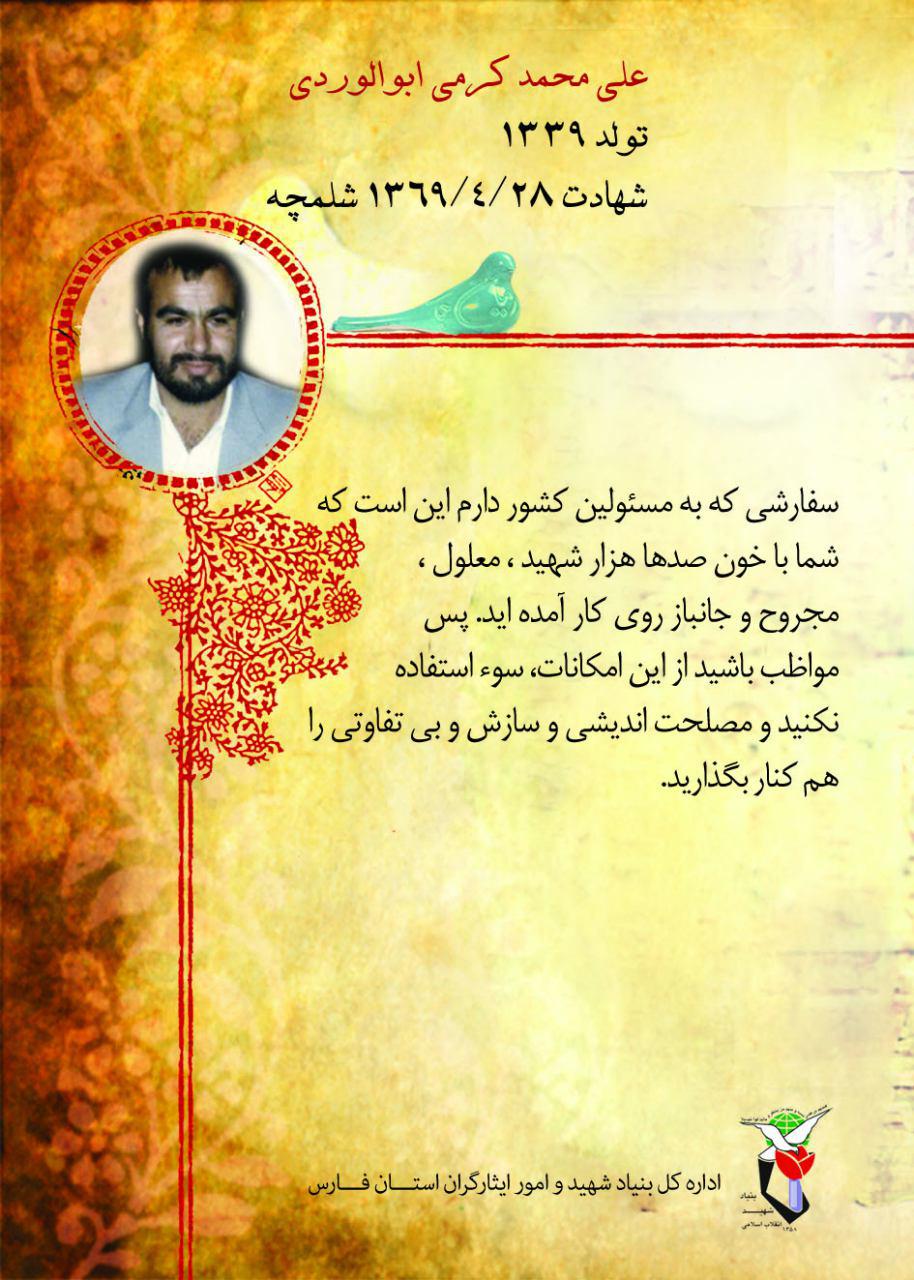 علی محمد کرمی ابوالوردی
تولد ۱۳۳۹
شهادت ۱۳٦۹/٤/۲۸ شلمچه
سفارشی که به مسئولین کشور دارم این است که
شما با خون صدها هزار شهید ، معلول ،
مجروح و جانباز روی کار آمده اید. پس
مواظب باشید از این امکانات، سوء استفاده
نکنید و مصلحت اندیشی و سازش و بی تفاوتی را
هم کنار بگذارید.
اداره کل بنیاد شهید و امور ایثارگران استان فارس
بنیاد
شهید
انقلاب اسلامی
۱۳۵۸